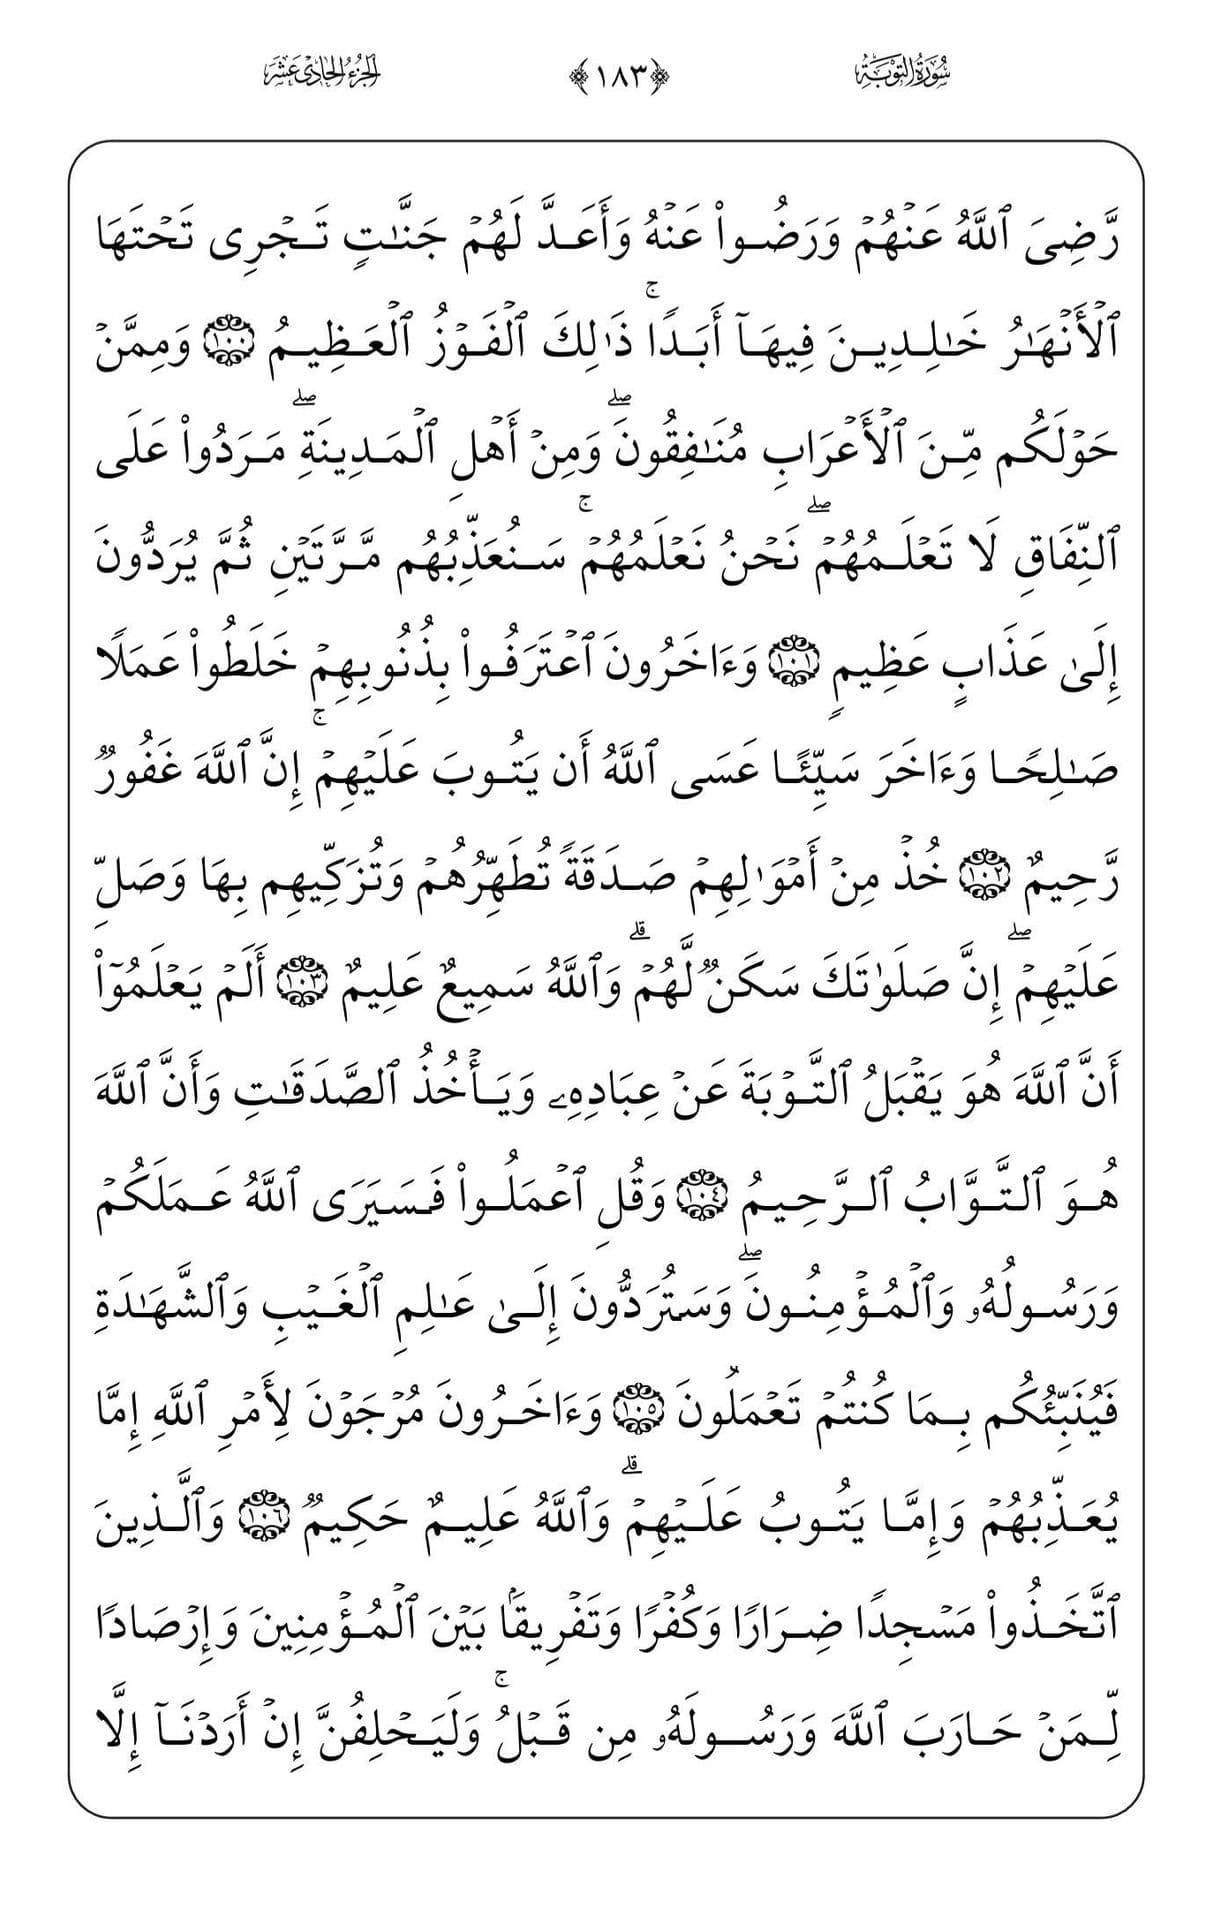 سُورَةُ التَّوْبَةِ ﴿١٨٣﴾ الجُزْءُ الحَادِي عَشَرَ
رَّضِىَ ٱللَّهُ عَنْهُمْ وَرَضُوا۟ عَنْهُ وَأَعَدَّ لَهُمْ جَنَّـٰتٍ تَجْرِى تَحْتَهَا
ٱلْأَنْهَـٰرُ خَـٰلِدِينَ فِيهَآ أَبَدًا ۚ ذَٰلِكَ ٱلْفَوْزُ ٱلْعَظِيمُ ١٠٠ وَمِمَّنْ
حَوْلَكُم مِّنَ ٱلْأَعْرَابِ مُنَـٰفِقُونَ ۖ وَمِنْ أَهْلِ ٱلْمَدِينَةِ ۖ مَرَدُوا۟ عَلَى
ٱلنِّفَاقِ لَا تَعْلَمُهُمْ ۖ نَحْنُ نَعْلَمُهُمْ ۚ سَنُعَذِّبُهُم مَّرَّتَيْنِ ثُمَّ يُرَدُّونَ
إِلَىٰ عَذَابٍ عَظِيمٍ ١٠١ وَءَاخَرُونَ ٱعْتَرَفُوا۟ بِذُنُوبِهِمْ خَلَطُوا۟ عَمَلًا
صَـٰلِحًا وَءَاخَرَ سَيِّئًا عَسَى ٱللَّهُ أَن يَتُوبَ عَلَيْهِمْ ۚ إِنَّ ٱللَّهَ غَفُورٌ
رَّحِيمٌ ١٠٢ خُذْ مِنْ أَمْوَٰلِهِمْ صَدَقَةً تُطَهِّرُهُمْ وَتُزَكِّيهِم بِهَا وَصَلِّ
عَلَيْهِمْ ۖ إِنَّ صَلَوٰتَكَ سَكَنٌ لَّهُمْ ۗ وَٱللَّهُ سَمِيعٌ عَلِيمٌ ١٠٣ أَلَمْ يَعْلَمُوٓا۟
أَنَّ ٱللَّهَ هُوَ يَقْبَلُ ٱلتَّوْبَةَ عَنْ عِبَادِهِۦ وَيَأْخُذُ ٱلصَّدَقَـٰتِ وَأَنَّ ٱللَّهَ
هُوَ ٱلتَّوَّابُ ٱلرَّحِيمُ ١٠٤ وَقُلِ ٱعْمَلُوا۟ فَسَيَرَى ٱللَّهُ عَمَلَكُمْ
وَرَسُولُهُۥ وَٱلْمُؤْمِنُونَ ۖ وَسَتُرَدُّونَ إِلَىٰ عَـٰلِمِ ٱلْغَيْبِ وَٱلشَّهَـٰدَةِ
فَيُنَبِّئُكُم بِمَا كُنتُمْ تَعْمَلُونَ ١٠٥ وَءَاخَرُونَ مُرْجَوْنَ لِأَمْرِ ٱللَّهِ إِمَّا
يُعَذِّبُهُمْ وَإِمَّا يَتُوبُ عَلَيْهِمْ ۗ وَٱللَّهُ عَلِيمٌ حَكِيمٌ ١٠٦ وَٱلَّذِينَ
ٱتَّخَذُوا۟ مَسْجِدًا ضِرَارًا وَكُفْرًا وَتَفْرِيقًۢا بَيْنَ ٱلْمُؤْمِنِينَ وَإِرْصَادًا
لِّمَنْ حَارَبَ ٱللَّهَ وَرَسُولَهُۥ مِن قَبْلُ ۚ وَلَيَحْلِفُنَّ إِنْ أَرَدْنَآ إِلَّا